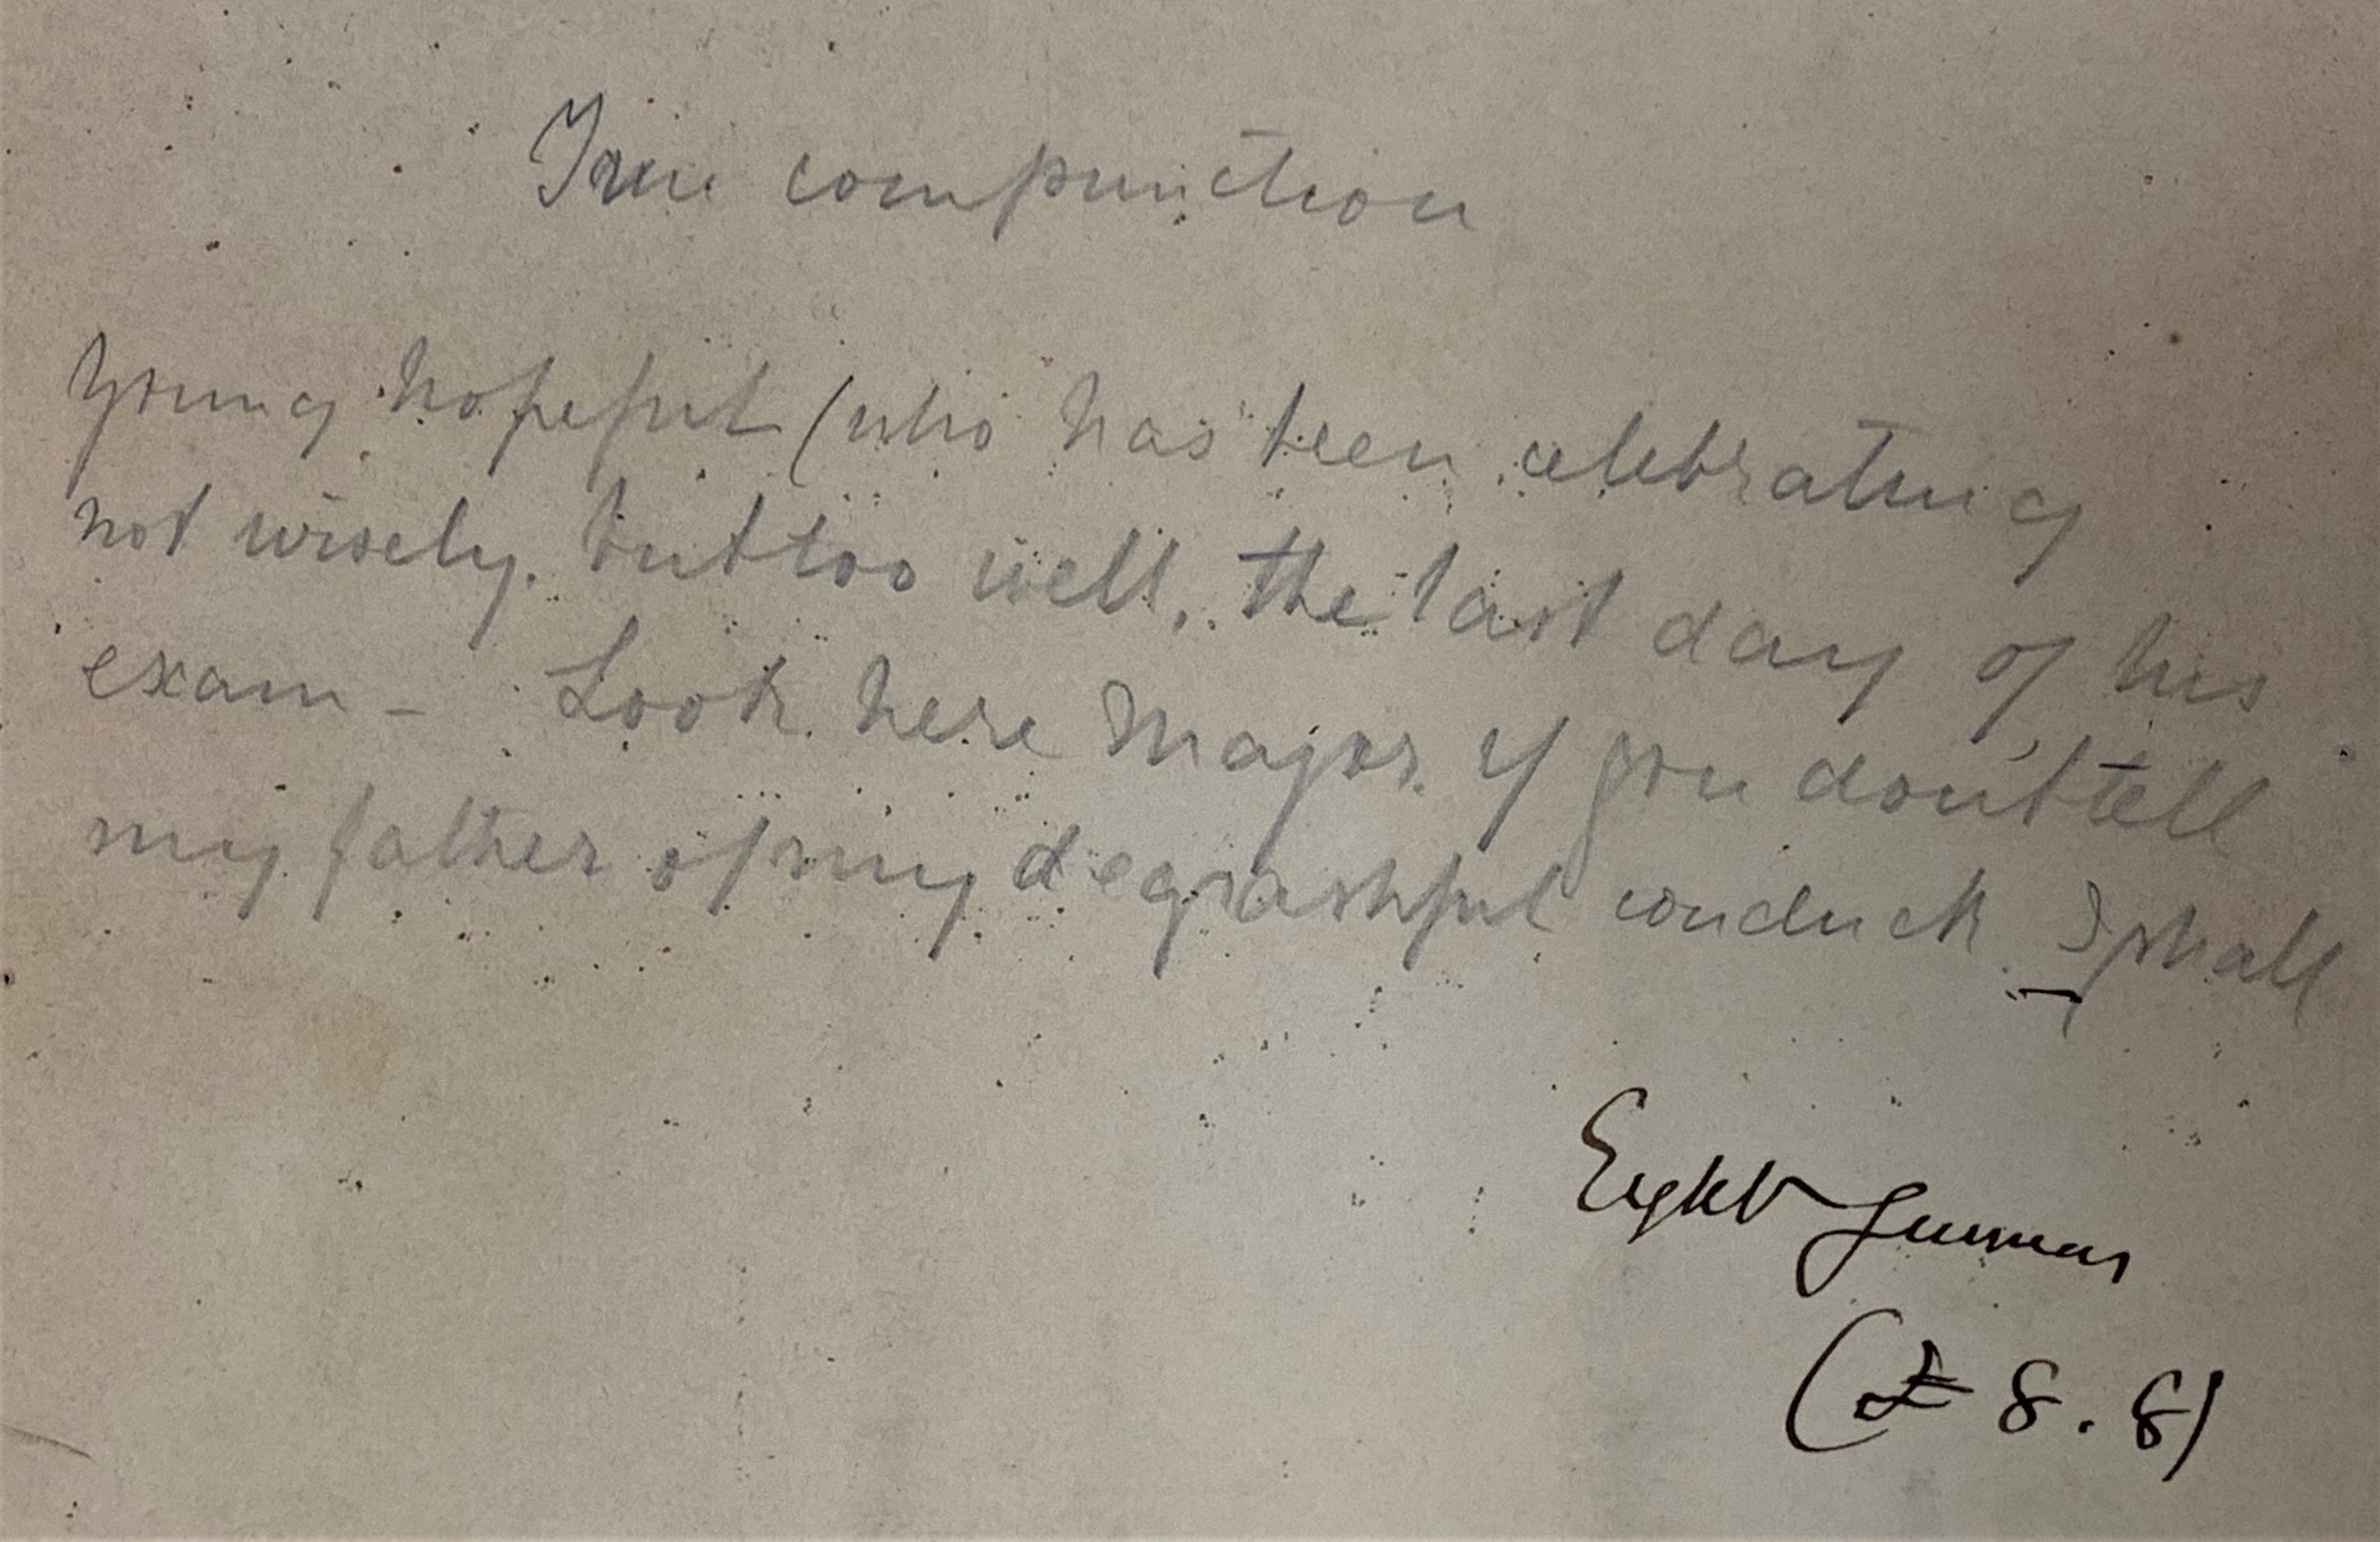 True compunction
Young hopeful (who has been celebrating
not wisely. but too well, the last day of his
exam - Look here Major. if you don't tell
my father of my degrashful conduck I shall
Eight Guineas
(£ 8. 8)